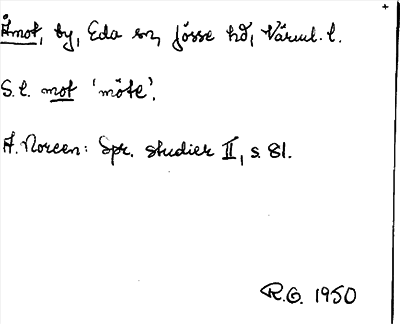 Åmot, by, Eda sn, Jösse hd, Värml. l.
S. l. mot 'möte'.
A. Noreen: Spr. studier II, s. 81.
R.G. 1950